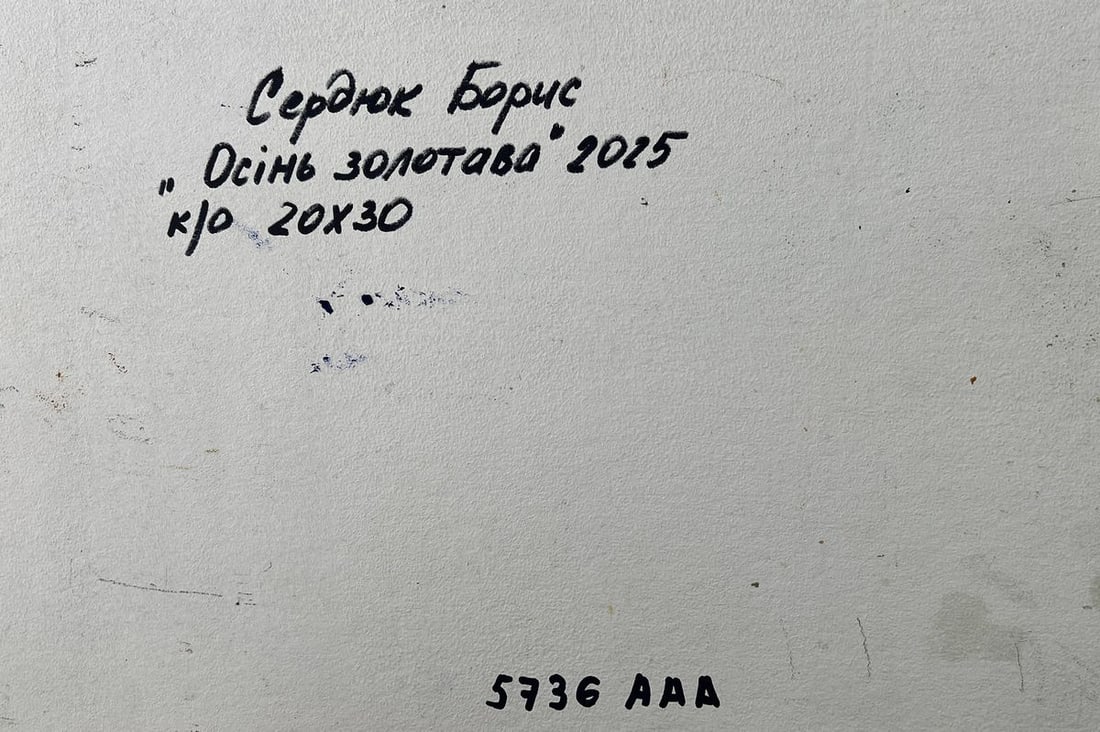 Сердюк Борис
„Осінь золотава" 2025
к/о 20х30
5736 ААА